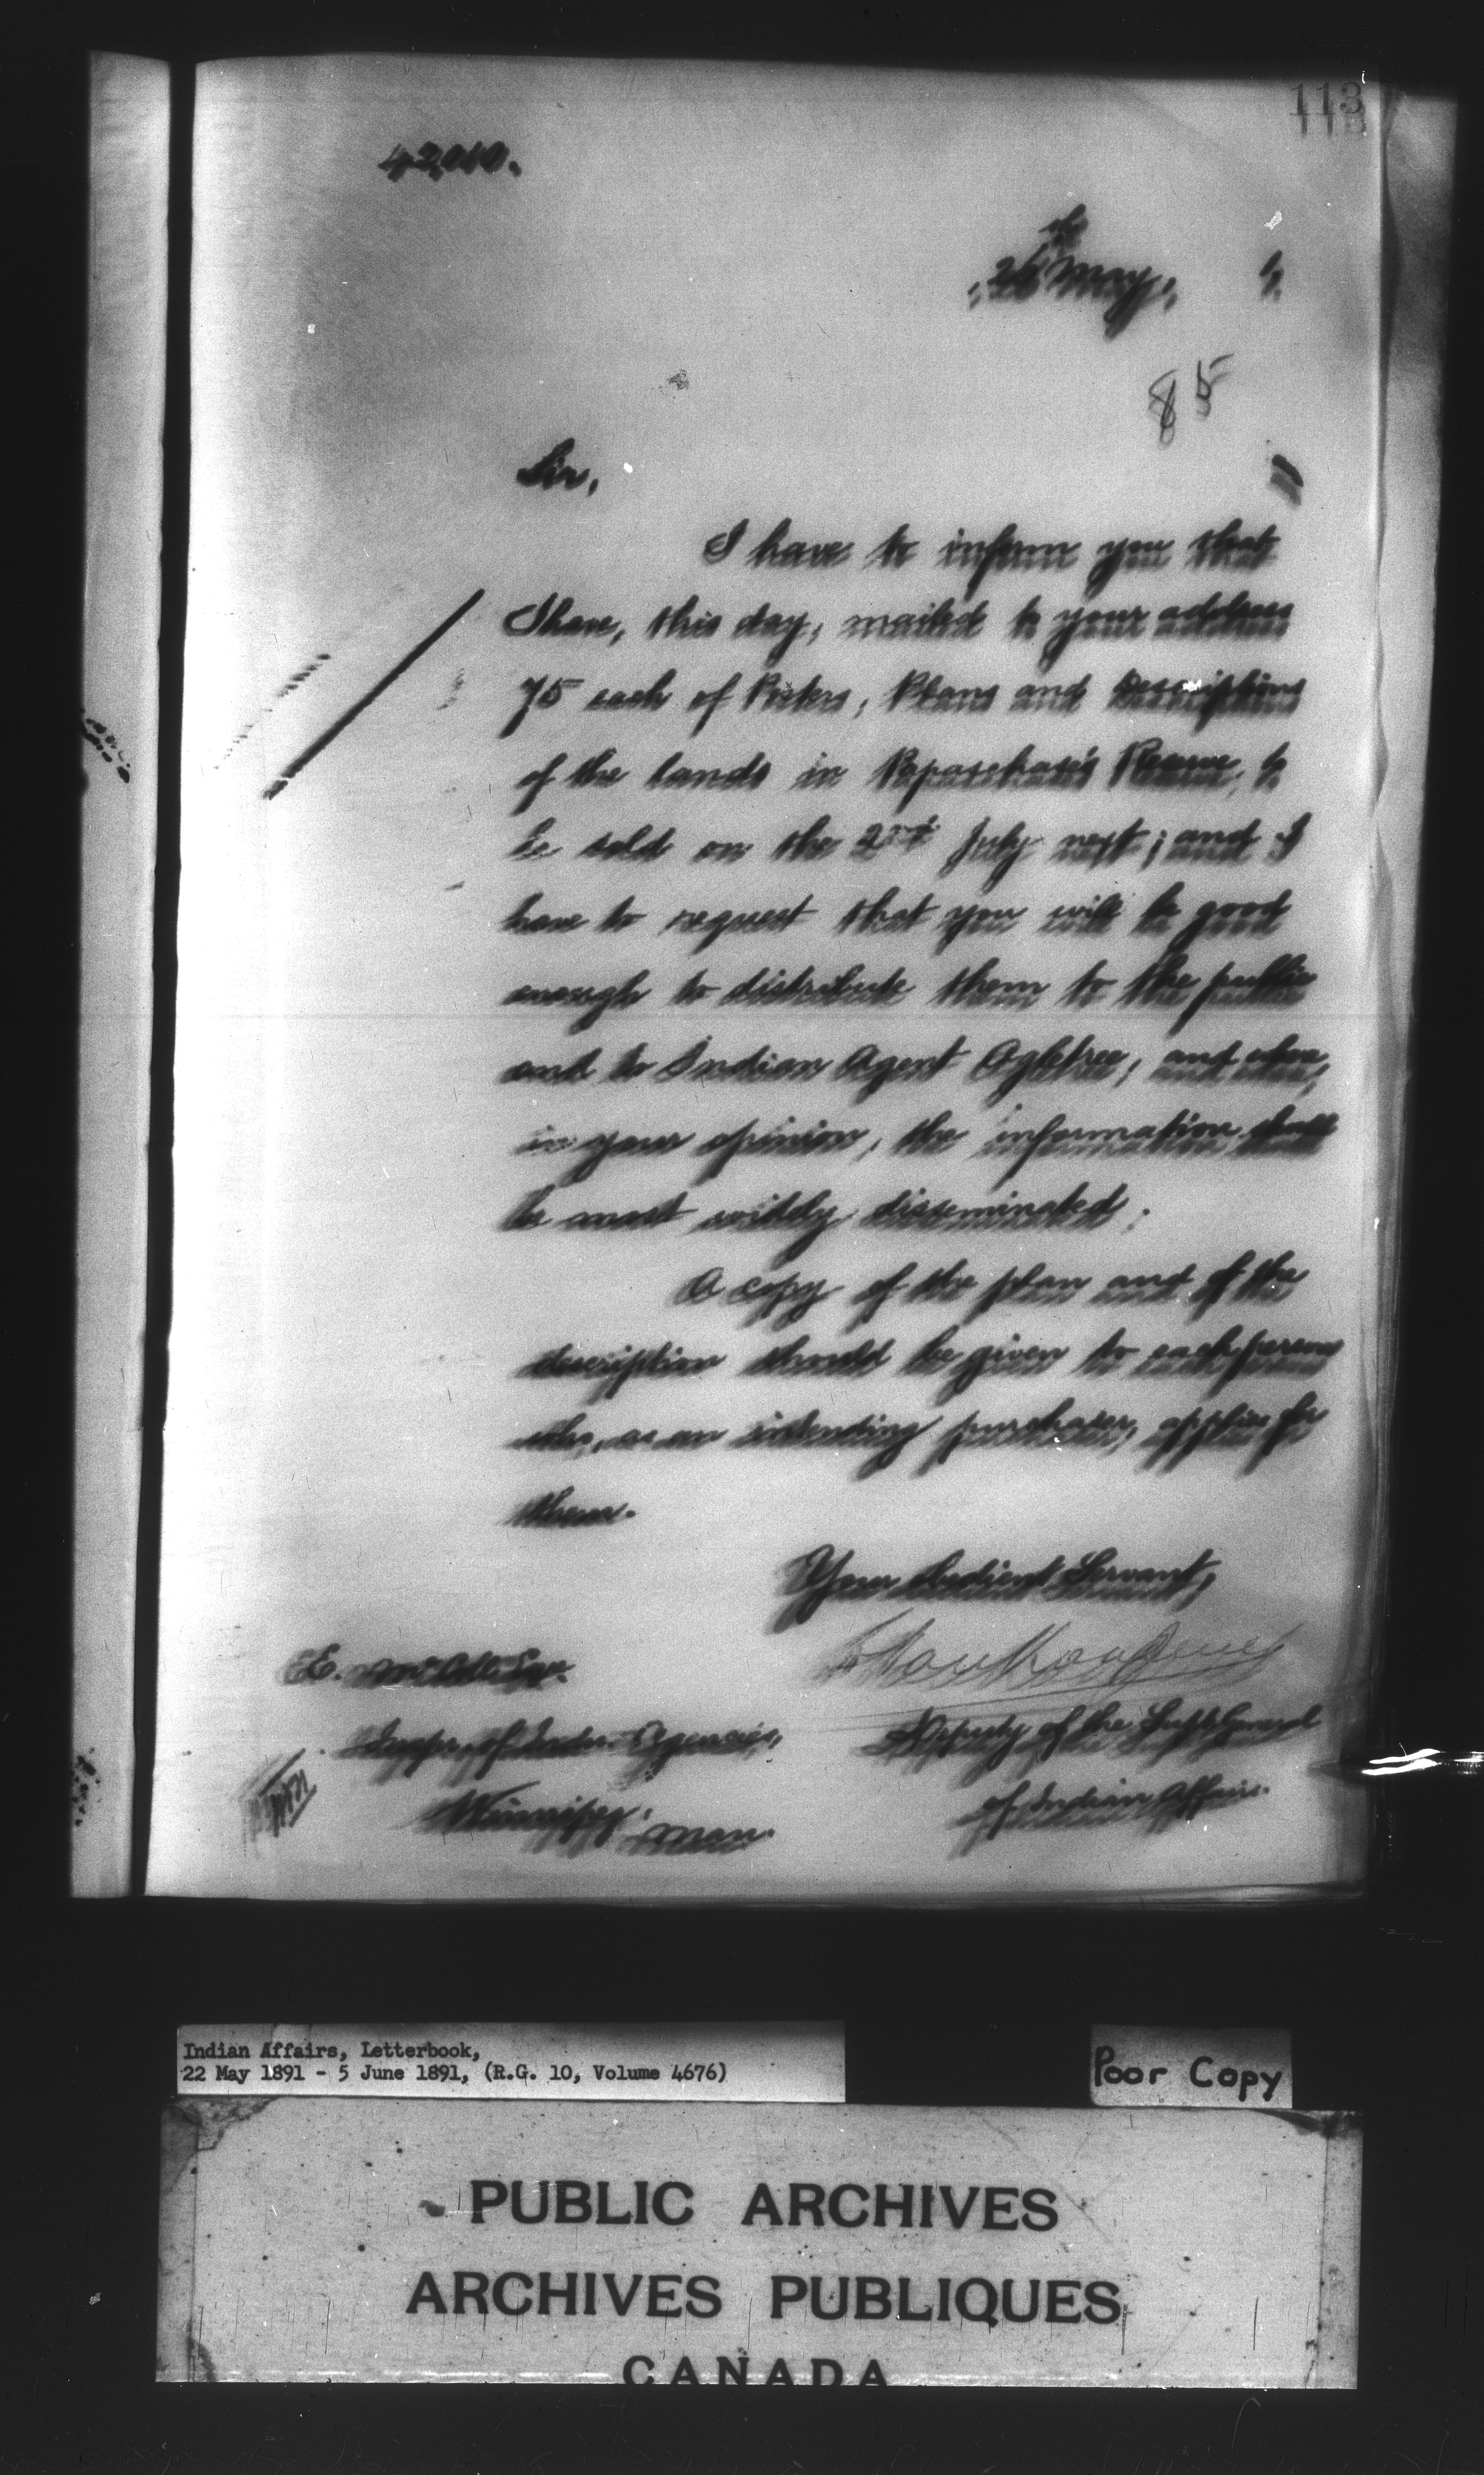 113
42,010.
26th May, 1.
85
Sir,
I have to inform you that
I have, this day, mailed to your address
75 each of Posters, Plans and Descriptions
of the lands in Papaschase's Reserve, to
be sold on the 2nd July next; and I
have to request that you will be good
enough to distribute them to the public
and to Indian Agent Ogletree, and where,
in your opinion, the information shall
be most widely disseminated.
A copy of the plan and of the
description should be given to each person
who, as an intending purchaser, applies for
them.
Your obedient Servant,
L. VanKoughnet
Deputy of the Supt. General
of Indian Affairs.
E. McColl Esqr.
Inspr. of Indn. Agencies,
Winnipeg, Man.
Indian Affairs, Letterbook,
22 May 1891 - 5 June 1891, (R.G. 10, Volume 4676)
Poor Copy
PUBLIC ARCHIVES
ARCHIVES PUBLIQUES
CANADA